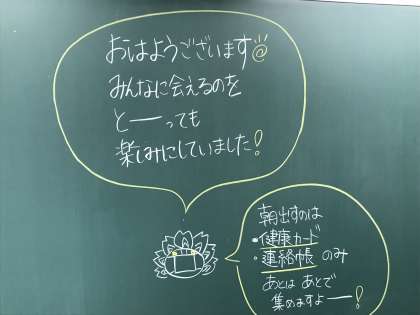 おはようございます@
みんなに会えるのを
と──っても
楽しみにしていました!
朝出すのは
•健康カード
•連絡帳 のみ
あとは あとで
集めますよ──!